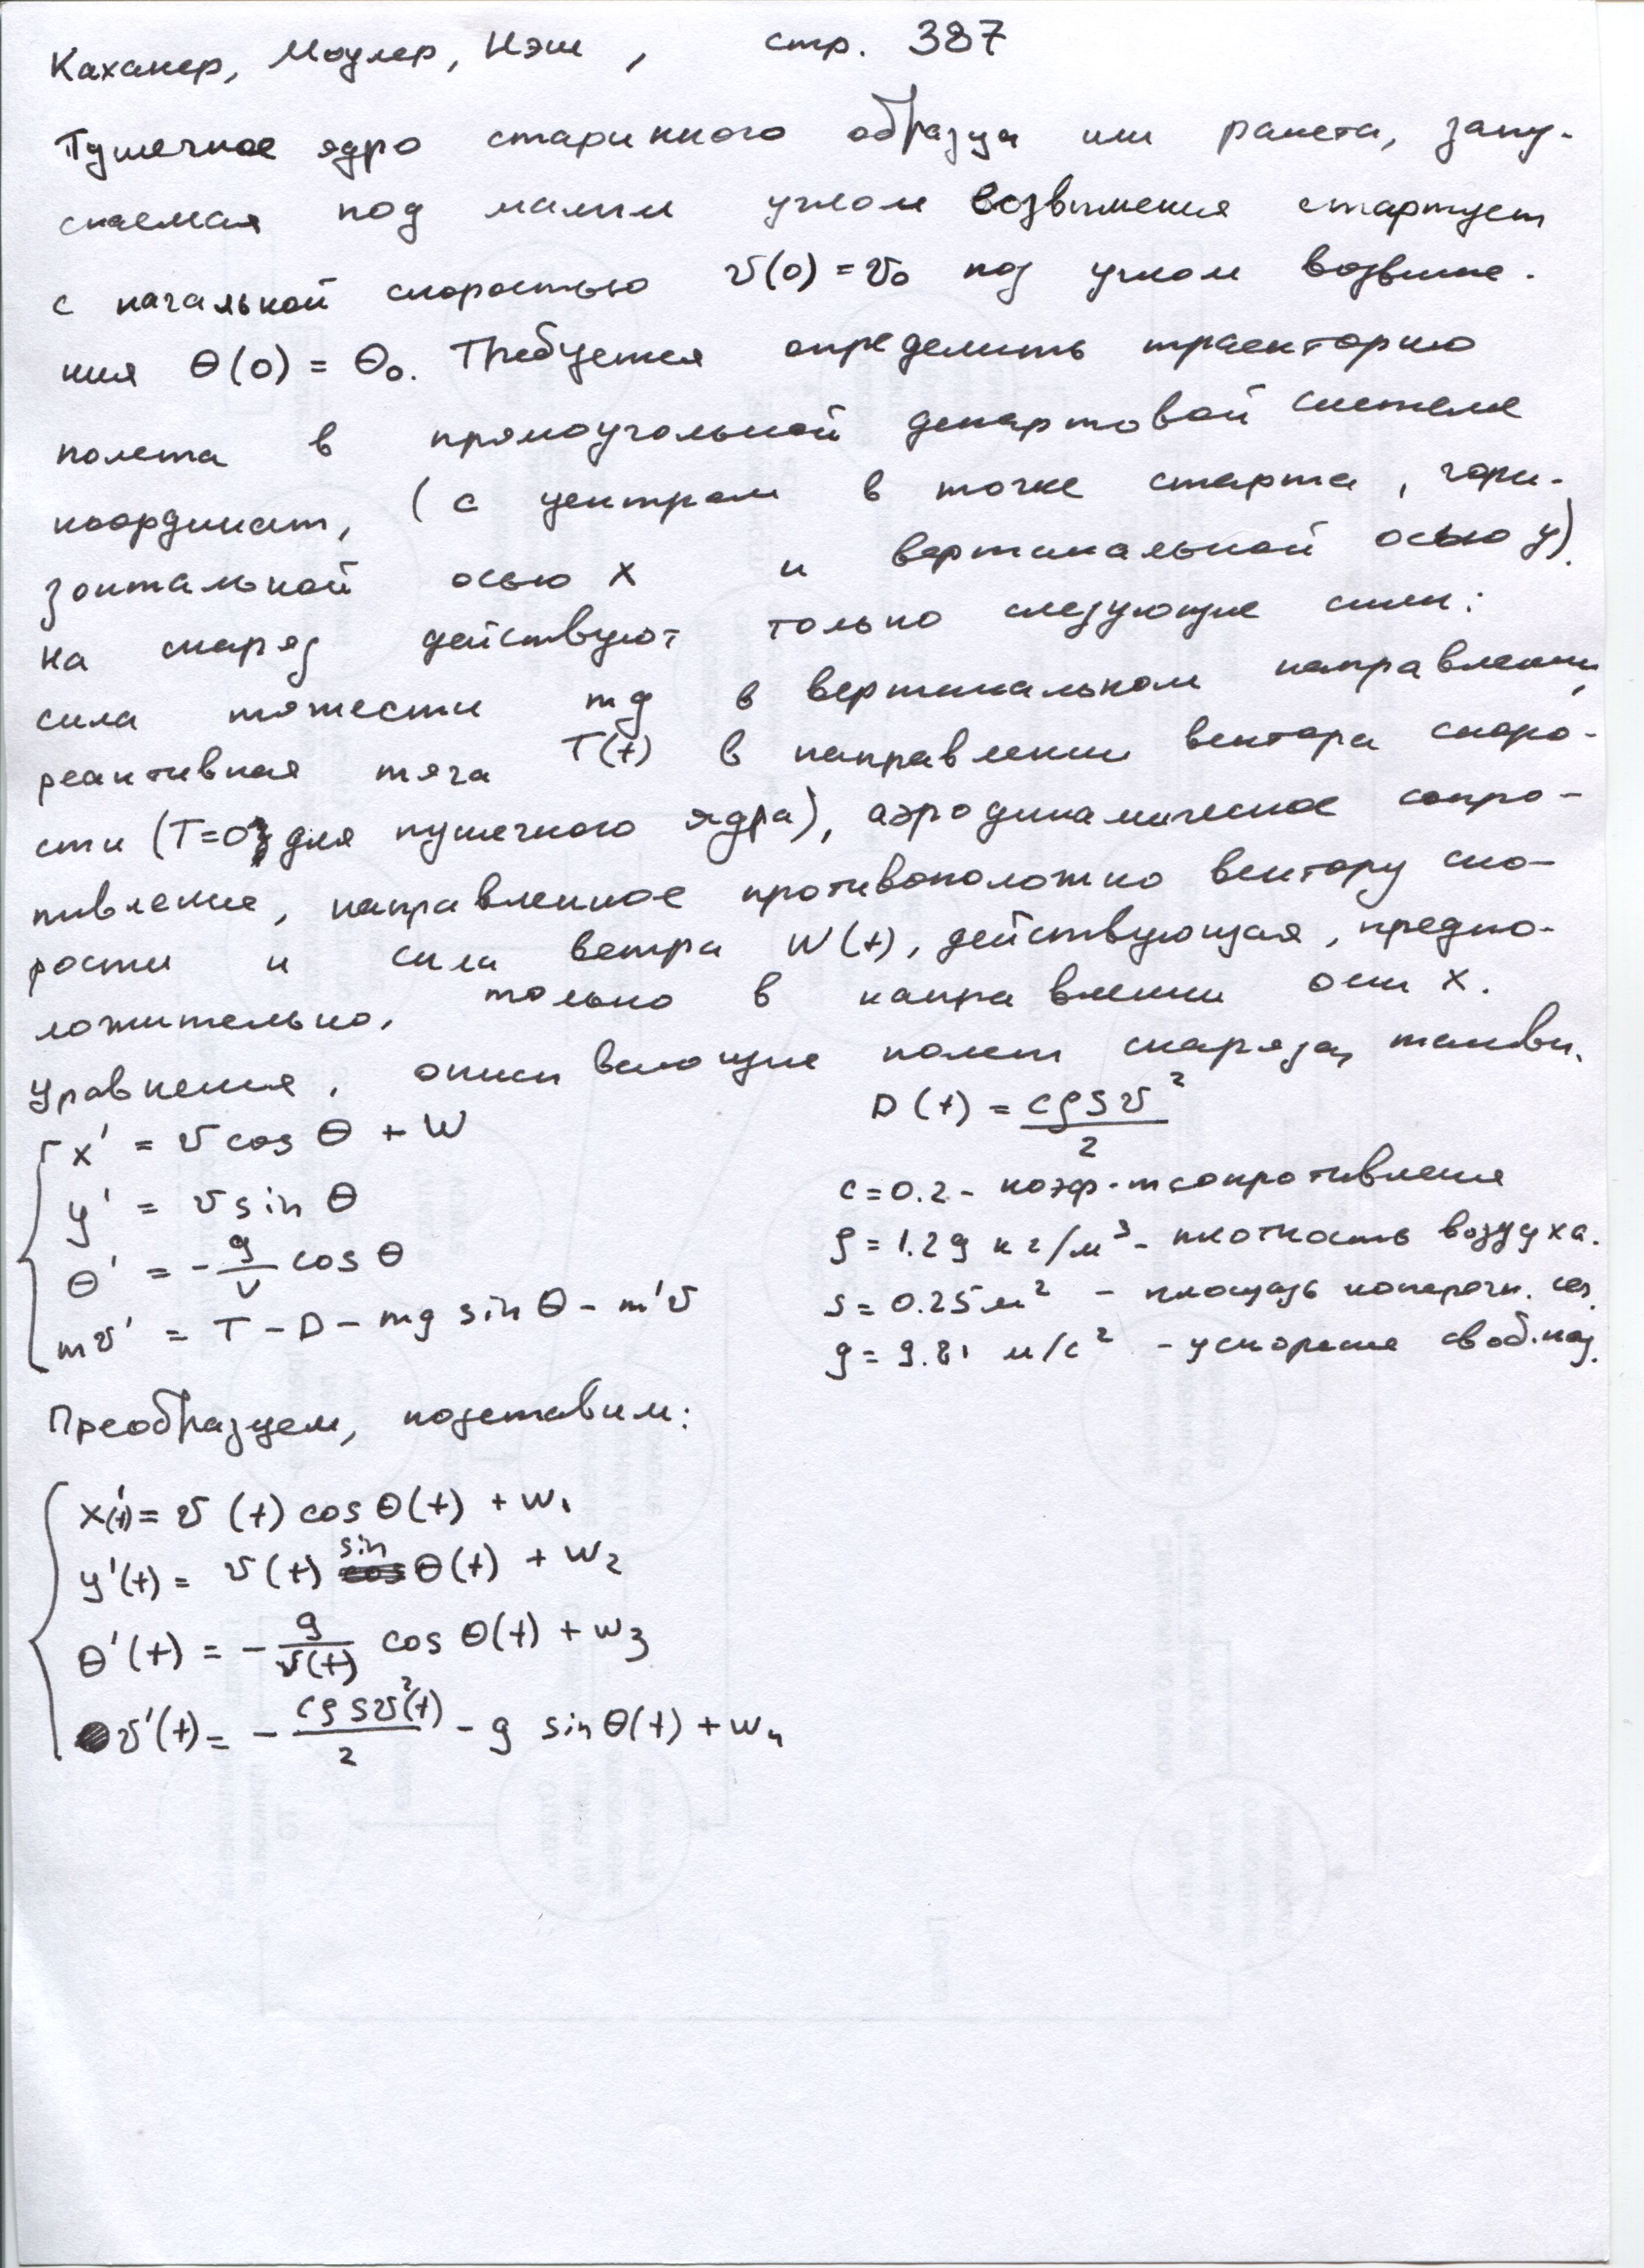 Каханер, Моулер, Нэш, стр. 387
Пушечное ядро старинного образца или ракета, запу-
скаемая под малым углом возвышения стартует
с начальной скоростью v(0) = v₀ под углом возвыше-
ния θ(0) = θ₀. Требуется определить траекторию
полета в прямоугольной декартовой системе
координат, (с центром в точке старта, гори-
зонтальной осью x и вертикальной осью y).
На снаряд действуют только следующие силы:
сила тяжести mg в вертикальном направлении,
реактивная тяга T(t) в направлении вектора скоро-
сти (T=0 для пушечного ядра), аэродинамическое сопро-
тивление, направленное противоположно вектору ско-
рости и сила ветра W(t), действующая, предпо-
ложительно, только в направлении оси x.
Уравнения, описывающие полет снаряда, таковы.
x' = v cos θ + W
y' = v sin θ
θ' = - g/v cos θ
mv' = T - D - mg sin θ - m'v
D(t) = cρsv²/2
c = 0.2 - коэф-т сопротивления
ρ = 1.29 кг/м³ - плотность воздуха.
s = 0.25 м² - площадь поперечн. сеч.
g = 9.81 м/с² - ускорение свод. пад.
Преобразуем, подставим:
x'(t) = v(t) cos θ(t) + w₁
y'(t) = v(t) sin θ(t) + w₂
θ'(t) = - g/v(t) cos θ(t) + w₃
v'(t) = - cρsv²(t)/2 - g sin θ(t) + w₄